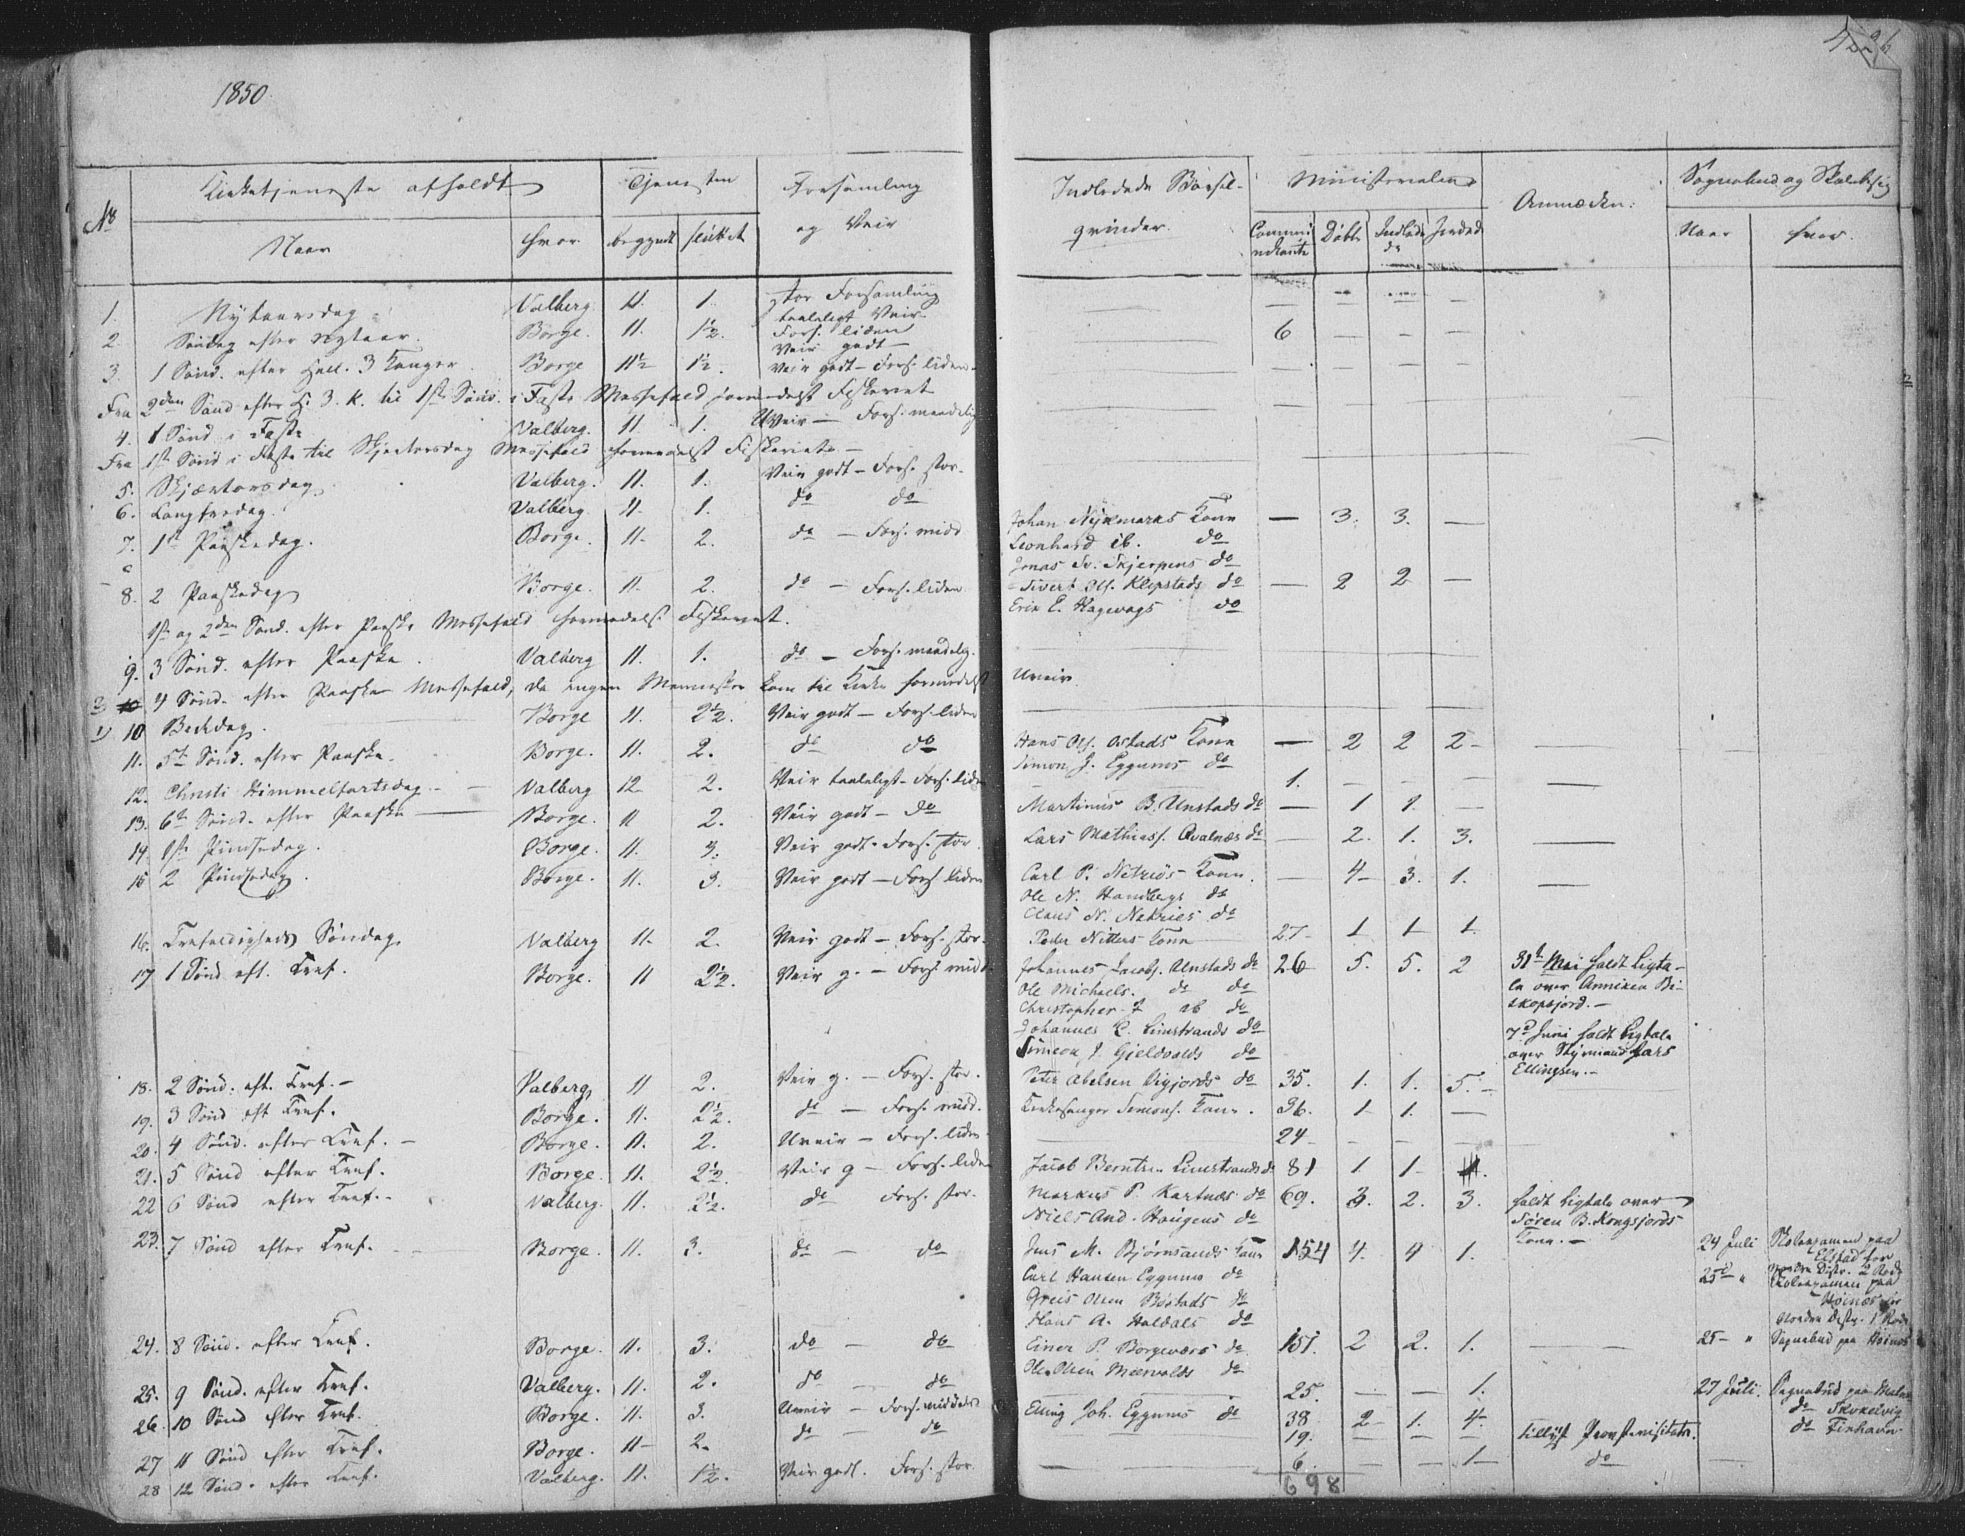 1850
426
Kirketjeneste afholdt
Tjenesten
Forsamling og Veir
Indledede Barselqvinder.
Ministerialer
Anmærkn:
Sognebud og Skolebesøg
No
Naar
hvor
begyndt
sluttet
Communicanter
Døbte
Indledede
Jordede
Naar
hvor.
1. Nytaarsdag Valberg 11. 1. stor Forsamling taaleligt Veir — — — —
2. Søndag efter Nytaar. Borge. 11. 1½. Fors. liden Veir godt — 6 — — —
3. 1 Sønd. efter Hell. 3 Konger Borge 11½ 1½. Veir godt — Fors. liden — — — —
Fra 2den Sønd efter H. 3. K. til 1ste Sønd. i Faste Messefald formedelst Fiskeriet
4. 1 Sønd i Faste Valberg. 11. 1. Uveir — Fors. maadelig
Fra 1ste Sønd i Faste til Skjærtorsdag Messefald formedelst Fiskeriet —
5. Skjærtorsdag Valberg. 11. 1. Veir godt — Fors. stor.
6. Langfredag. Valberg. 11. 1. do do
7. 1ste Paaskedag. Borge. 11. 2. do — Fors. midd Johan Nykmarks Kone — 3. 3. —
Leonhard ib. do
Jonas Sv. Skjerpens do
8. 2 Paaskedag Borge. 11. 2. do — Fors. liden Sivert Ols. Klepstads do — 2 2 —
Erik E. Hagevogs do
1ste og 2den Sønd. efter Paaske Messefald formedelst Fiskeriet.
9. 3 Sønd. efter Paaske. Valberg 11. 1. do — Fors. maadelig.
2) 10 4 Sønd. efter Paaske Messefald, da ingen Mennesker kom til Kirke formedelst Uveir.
1) 10 Bededag. Borge 11. 2½. Veir godt — Fors. liden
11. 5te Sønd. efter Paaske. Borge. 11. 2. do do Hans Ols. Ostads Kone — 2 2 2 —
Simon J. Eggums do
12. Christi Himmelfartsdag — Valberg 12 2. Veir taaleligt — Fors. liden 1. — — —
13. 6te Sønd. efter Paaske — Borge. 11 2. Veir godt — do Martinus B. Unstads do — 1 1. —
14 1ste Pindsedag. Borge. 11. 3. Veir godt. Fors. stor Lars Mathiass. Qvalnæs do — 2. 1. 3. —
15 2 Pindsedag. Borge. 11. 3. Veir godt — Fors liden Carl P. Kone. — 4 3. 1. —
Ole N. Handbergs do
Claus N. do
16. Trefoldigheds Søndag Valberg 11. 2. Veir godt — Fors. stor. Peder Kone 27 1 1 1.
17 1 Sønd. eft. Tref. Borge. 11 2½. Veir g. — Fors midd Johannes Jacobs. Unstads do 26 5. 5. 2 31te Mai holdt Ligtale over Anniken Biskopsjord. —
Ole Michaels. do do
Christopher J ib do
Johannes C. Limstrands do 7de Juni holdt Ligtale
Simeon J. Gjeldvolds do over Styrmand Lars Ellingsen. —
18. 2 Sønd. eft. Tref. — Valberg, 11 2. Veir g. — Fors. stor. Peter Abelsen Vigjords do 35. 1. 1. 5. —
19. 3 Sønd eft Tref. Borge. 11. 2½. do — Fors. midd. Kirkesanger Simons. Kone. 36. 1 1. —
20. 4 Sønd. efter Tref. — Borge. 11. 2. Uveir — Fors. liden 24 — — —
21. 5 Sønd efter Tref. Borge. 11. 2½. Veir g — Fors. liden Jacob Berntsen Limstrands do 81 1. 1.
22 6 Sønd efter Tref. — Valberg. 11. 2½. do Fors. stor. Markus P. Kartnæs do 69. 3. 2. 3. holdt Ligtale over Søren B. Kongsjords Kone. —
Niels And. Haugens do
23. 7 Sønd efter Tref. — Borge. 11. 3. do — do Jens M. Bjørnsands Kone 154 4. 4 1. 24 Juli Skolexamen paa Elstad for Nordre Distr. 2 Rode
Carl Hansen Eggums do 25de " Skolexamen paa Høinæs for Nordre Distr. 1 Rode
Greis Olsen Bøstads do
Hans A. Haldals do
24. 8 Sønd. efter Tref. Borge. 11. 3. do — do Einer P. Borgevær do 151. 2 2. 1. — 25 — " Sognebud paa Høinæs
Ole Olsen Mærvolds do
25. 9 Sønd. efter Tref. Valberg. 11. 2. do — do 25. — — 1. 27 Juli. Sognebud paa
26. 10 Sønd efter Tref. Borge. 11. 3. Uveir — Fors. middels Elling Joh. Eggums do 38 2 1. 4. do Skokelvig
27 11 Sønd efter Tref. Borge. 11 — 2. do — do 19. — — — Tillyst Provstevisitats. do Finhavn
28 12 Sønd. efter Tref. Valberg. 11. 1½. Veir godt. Fors. stor. 6. — — 1 — do —
698